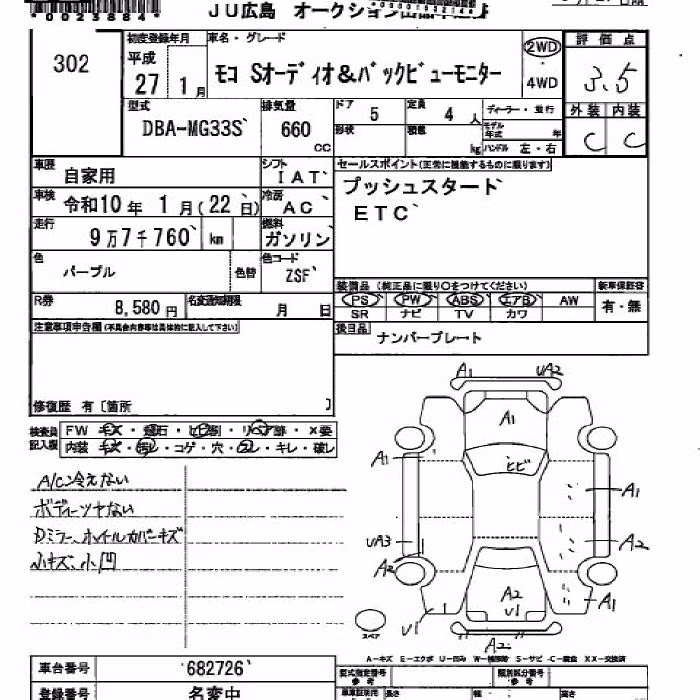 *0023884*
JU広島 オークション
302
初度登録年月
平成
27 1月
車名・グレード
モコ Sオーディオ&バックビューモニター
2WD
・
4WD
評価点
3.5
外装 内装
C C
型式
DBA-MG33S
排気量
660
cc
ドア 5
形状
定員 4 人
積載 kg
ディーラー・並行
モデル年式 年
ハンドル 左・右
車歴 自家用
シフト IAT
車検 令和10年 1月(22日)
冷房 AC
走行 9万7千760 km
燃料 ガソリン
色 パープル
色替
色コード ZSF
セールスポイント(正常に機能するものに限ります)
プッシュスタート
ETC
装備品(純正品に限り○をつけてください)
新車保証書
PS PW ABS エアB AW
有・無
SR ナビ TV カワ
R券 8,580円
名変通知期限 月 日
後日品 ナンバープレート
注意事項申告欄(不具合内容等は具体的に記入して下さい)
修復歴 有〔箇所 〕
検査員記入欄
FW キズ・飛石・ヒビ割・リペア跡・X要
内装 キズ・汚レ・コゲ・穴・スレ・キレ・破レ
A/C冷えない
ボディーツヤない
Dミラー、ホイルカバーキズ
小キズ、小凹
A1 UA2
A1
ヒビ
A1
A1
UA3
A2
A2
A2
U1
A1
U1
A2
スペア
A-キズ E-エクボ U-凹み W-補修跡 S-サビ C-腐食 XX-交換済
車台番号 682726
登録番号 名変中
型式指定番号
参考
類別区分番号
参考
長さ
幅
高さ